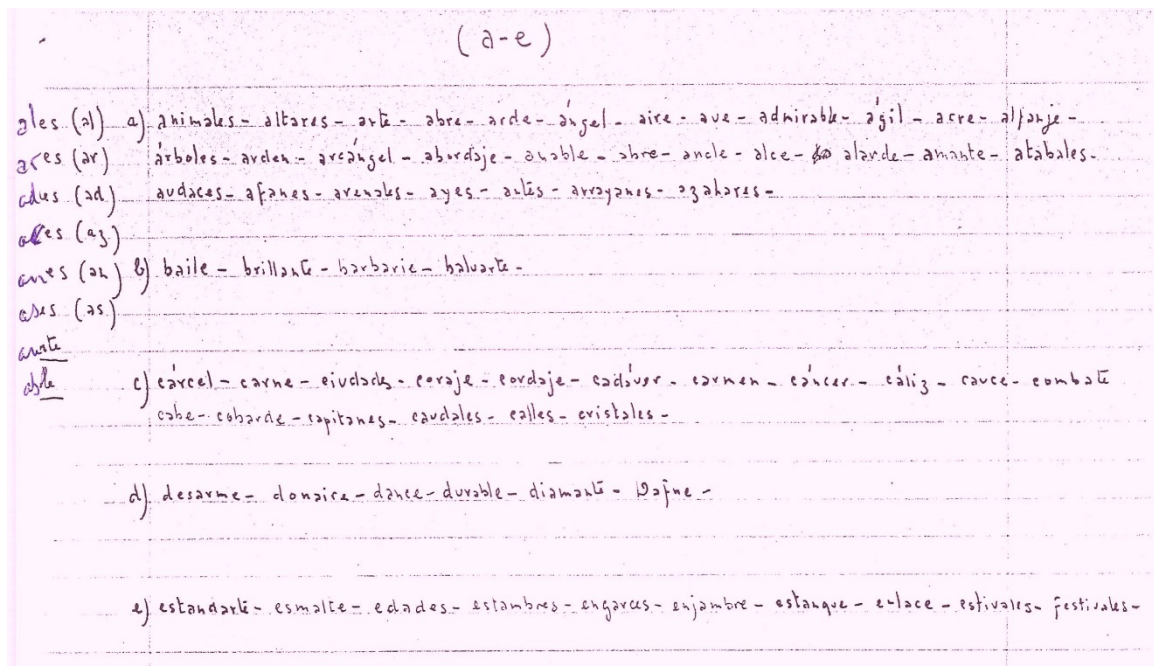 (a-e)
ales (al) a) animales - altares - arte - abre - arde - ángel - aire - ave - admirable - ágil - acre - alfanje -
ares (ar) árboles - arden - arcángel - abordaje - amable - abre - ancle - alce - alarde - amante - atabales -
ades (ad) audaces - afanes - arenales - ayes - antes - arrayanes - azahares -
aces (az)
anes (an) b) baile - brillante - barbarie - baluarte -
ases (as)
ante
able c) cárcel - carne - ciudades - coraje - cordaje - cadáver - carmen - cáncer - cáliz - cauce - combate
cabe - cobarde - capitanes - caudales - calles - cristales -
d) desarme - donaire - dance - durable - diamante - Dafne -
e) estandarte - esmalte - edades - estambres - engarces - enjambre - estanque - enlace - estivales - festivales -